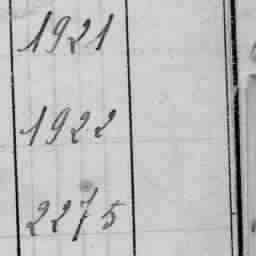 1921
1922
2275